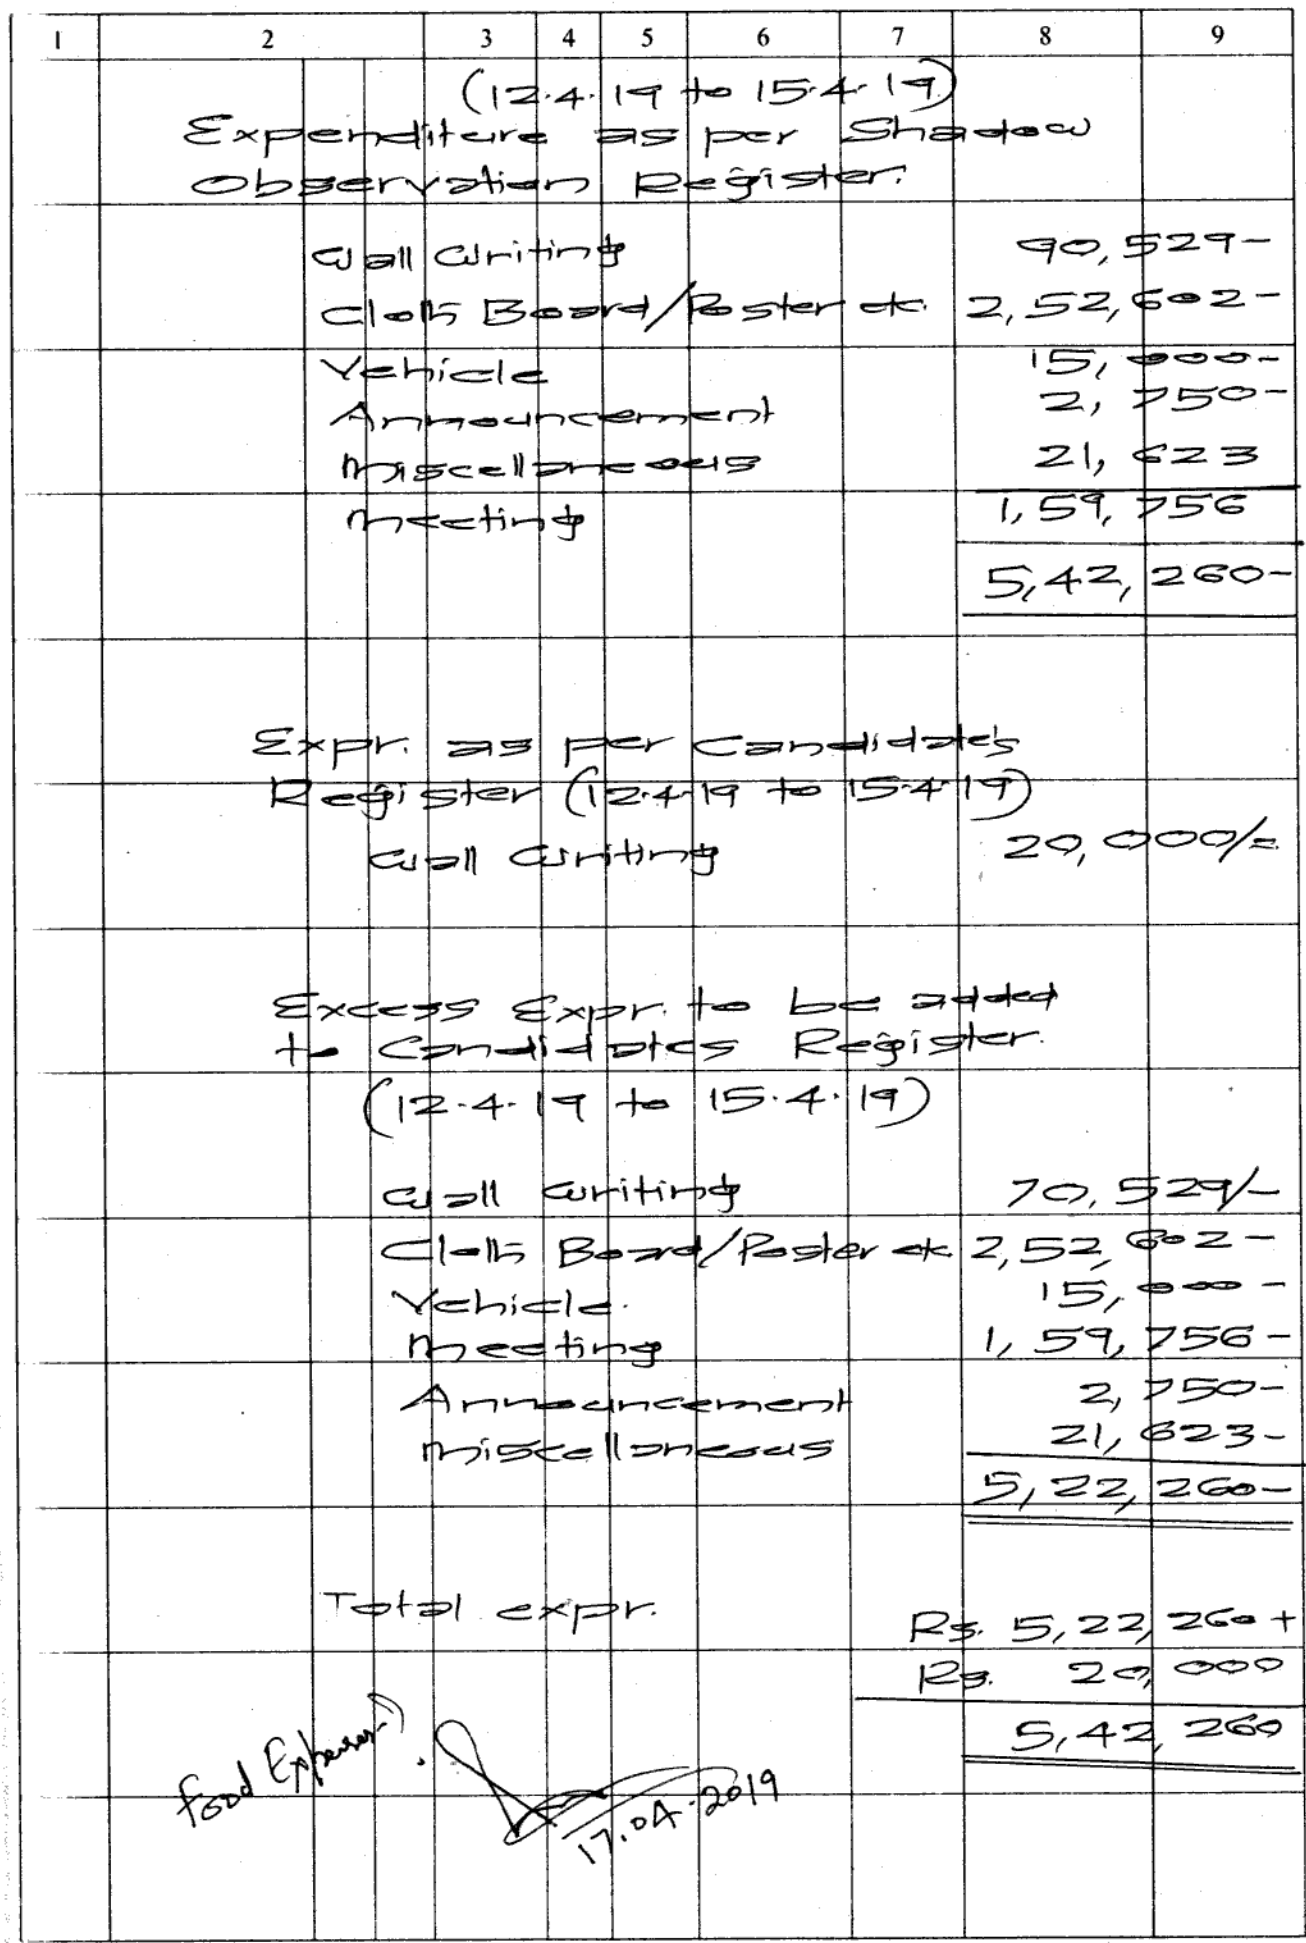 1 2 3 4 5 6 7 8 9
(12.4.19 to 15.4.19)
Expenditure as per Shadow
Observation Register.
Wall Writing 90,529-
Cloth Board/Poster etc. 2,52,602-
Vehicle 15,000-
Announcement 2,750-
Miscellaneous 21,623
Meeting 1,59,756
5,42,260-
Expr. as per Candidate's
Register (12.4.19 to 15.4.19)
Wall Writing 20,000/=
Excess Expr. to be added
to Candidates Register.
(12.4.19 to 15.4.19)
Wall Writing 70,529/-
Cloth Board/Poster etc 2,52,602-
Vehicle. 15,000-
Meeting 1,59,756-
Announcement 2,750-
Miscellaneous 21,623-
5,22,260-
Total expr. Rs. 5,22,260+
Rs. 20,000
5,42,260
Food Expenses?
17.04.2019